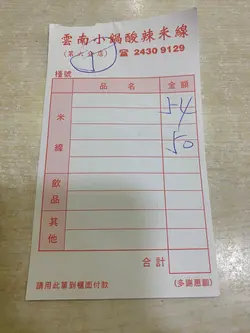 雲南小鍋酸辣米線
(第六分店) ☎ 2430 9129
檯號
品 名 金 額
54
米線
50
飲品
其他
合計
請用此單到櫃面付款 (多謝惠顧)